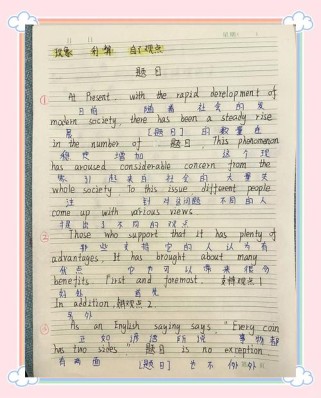 现象 利弊 自己观点
题目
① At Present, with the rapid development of
目前 随着 社会的发
modern society, there has been a steady rise
展 [题目] 的数量在
in the number of 题目. This phenomenon
稳定增加 这个现
has aroused considerable concern from the
象引起来自社会的大量关
whole society. To this issue different people
注 针对这问题 不同的人
come up with various views.
提出了不同的观点
② Those who support that it has plenty of
那些支持它的人认为有
advantages. It has brought about many
优点 它可以带来很多
benefits. First and foremost, 支持观点1
好处 首先
In addition, 支持观点2.
另外
③ As an English saying says, "Every coin
正如谚语所说 事物都
has two sides". 题目 is no exception
有两面 [题目] 也不例外